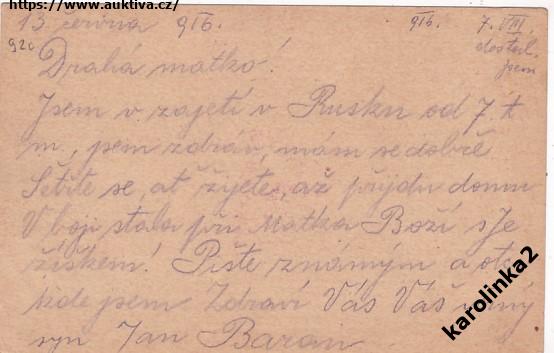 https://www.auktiva.cz/
13. června 916. 916. 7. VIII.
920 dostal
jsem
Drahá matko!
Jsem v zajetí v Rusku od 7. t.
m., jsem zdráv, mám se dobře
Šetřte se, ať žijete, až přijdu domu
V boji stála při Matka Boží s Je
žíškem! Pište známým a
kde jsem Zdraví Vás Váš
syn Jan Baran
karolinka2